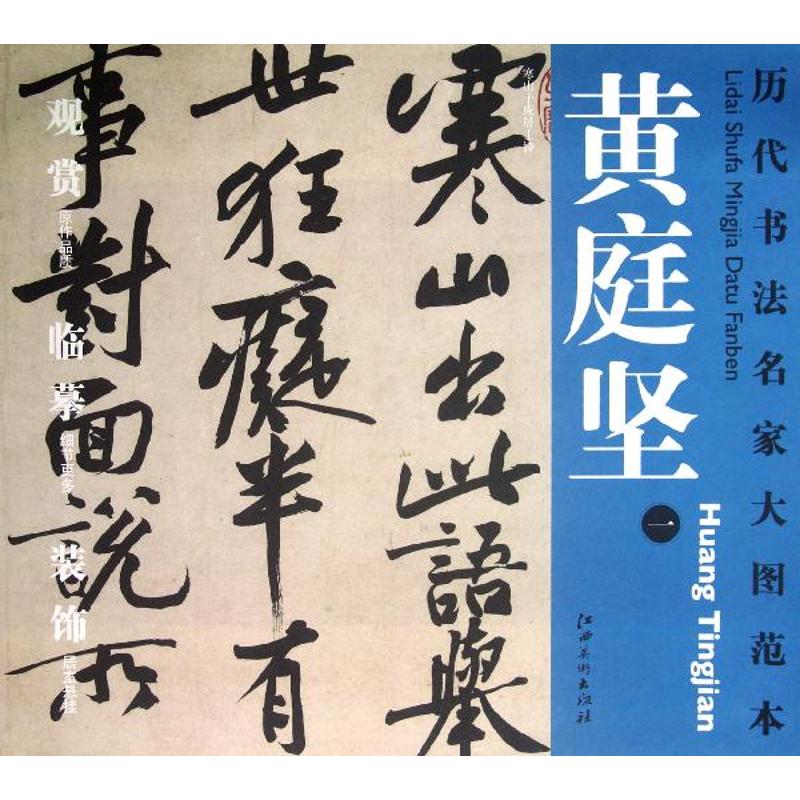 历代书法名家大图范本
Lidai Shufa Mingjia Datu Fanben
黄庭坚
一
Huang Tingjian
江西美术出版社
寒山子庞居士诗
寒山出此語舉
世狂癡半有
事對面說所
观赏
原作品质
临摹
细节更多
装饰
居室悬挂